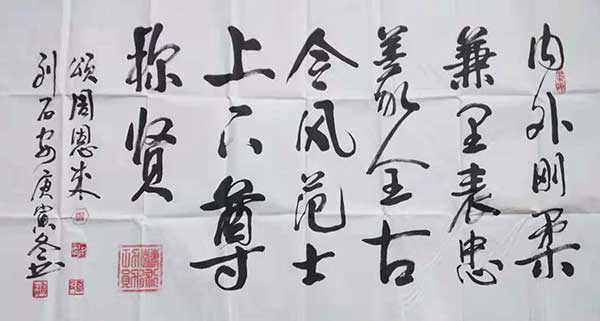 内外刚柔
兼里表忠
義全古
今风范士
上下尊
称贤
颂周恩来
石安庚寅冬书